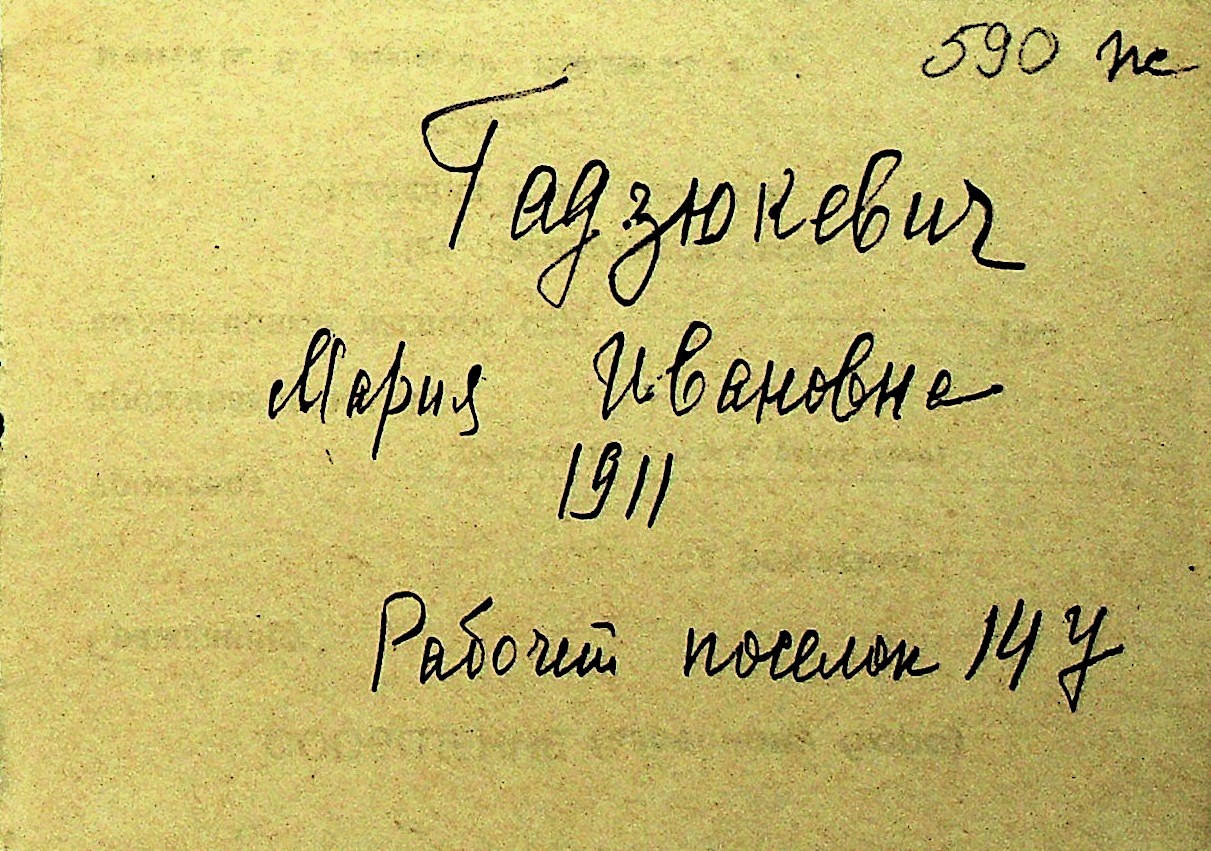 590 пс
Гадзюкевич
Мария Ивановна
1911
Рабочей поселок 14 У